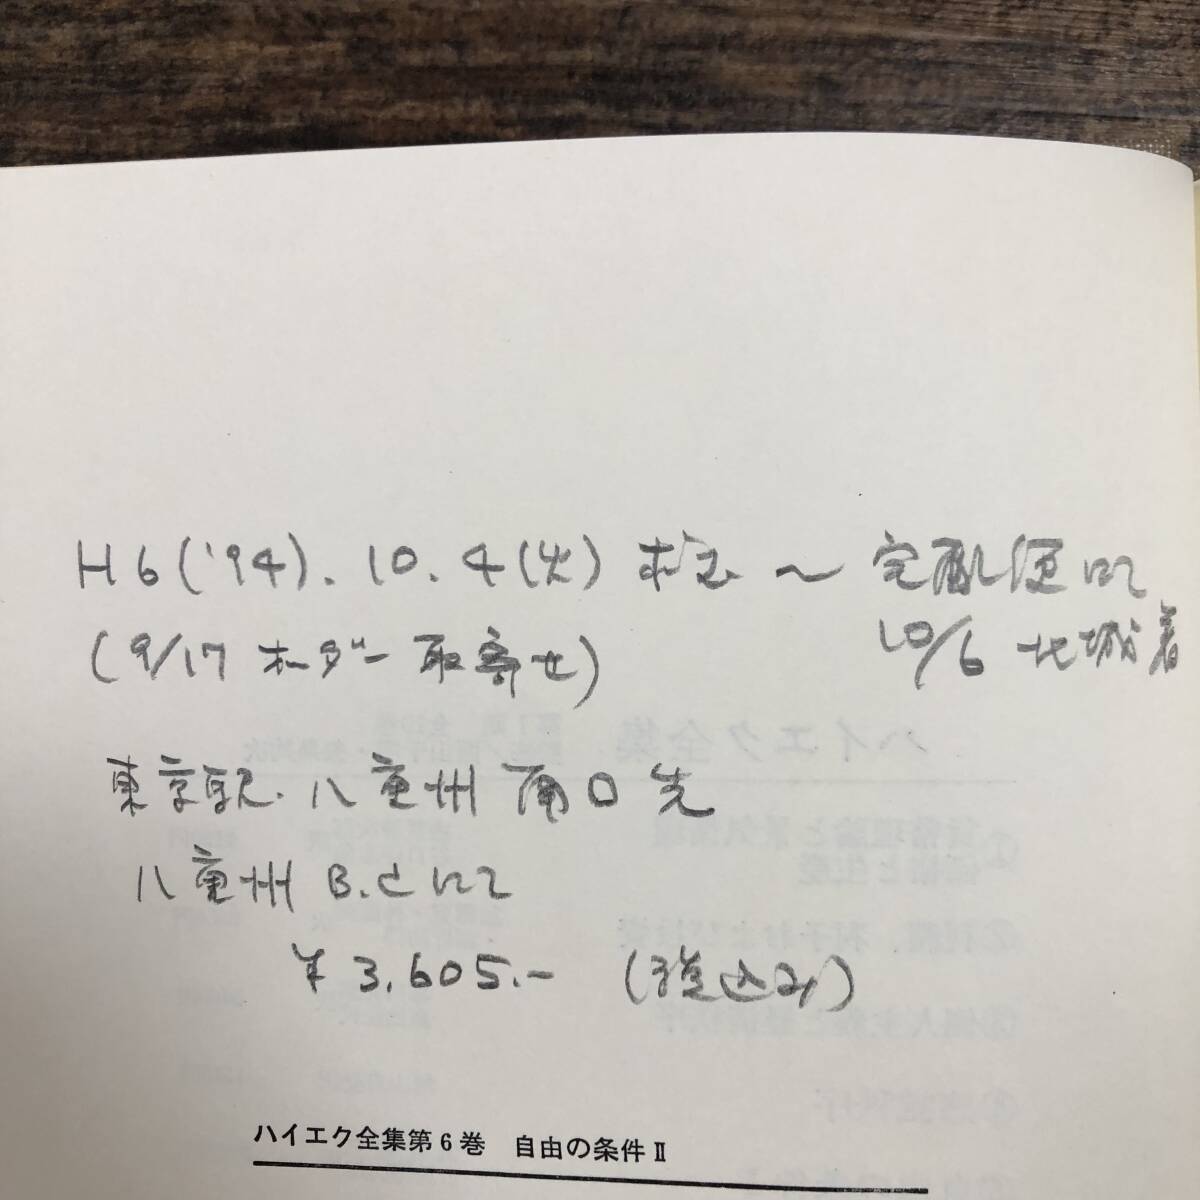 H6('94). 10. 4(火) 求む 〜 宅配便にて
10/6 北城着
(9/17 オーダー取寄せ)
東京駅・八重州南口先
八重州B.Cにて
¥3,605.- (税込み)
ハイエク全集第6巻 自由の条件Ⅱ